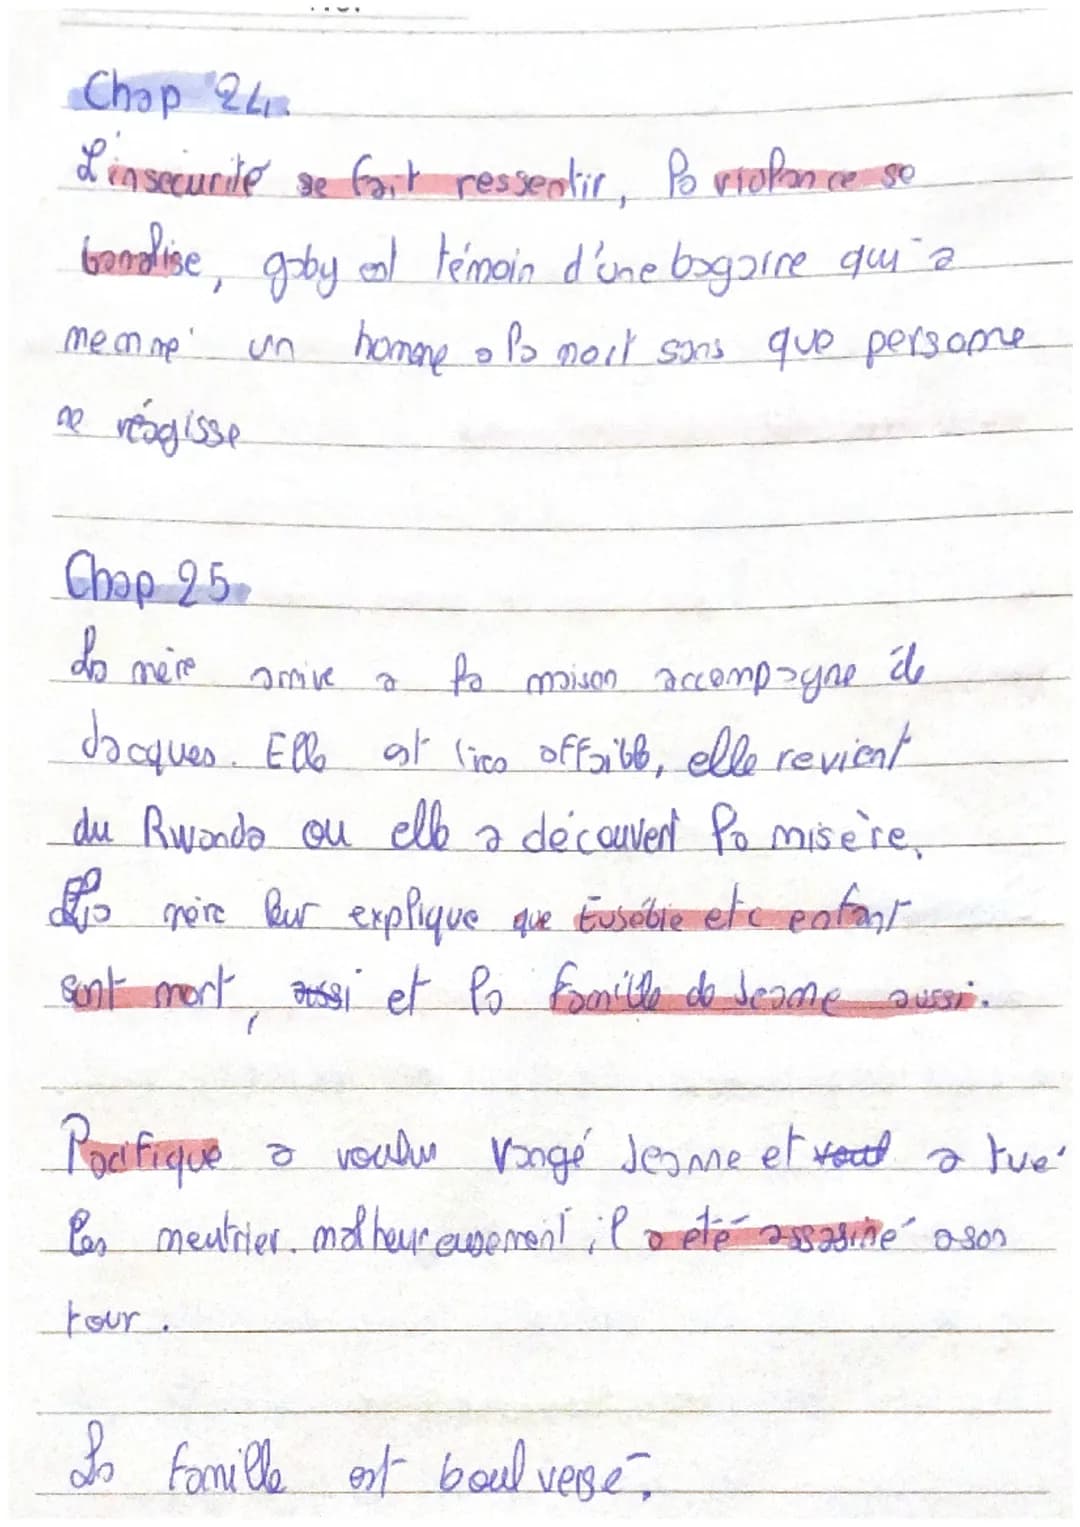 Chap 24.
L'insecurité se fait ressentir, la violance se
banalise, gaby est témoin d'une bagarre qui a
menné un homme a la mort sans que personne
ne réagisse
Chap 25
La mère arrive a la maison accompagne de
Jacques. Elle est affaibli, elle revient
du Rwanda ou elle a découvert la misère.
La mère leur explique que Eusébie etc enfant
sont mort, aussi et la famille de Jeanne aussi.
Pacifique a voulu vangé Jeanne et a tué
les meutrier. malheureusement il a été assasiné a son
tour.
La famille est boulversé.